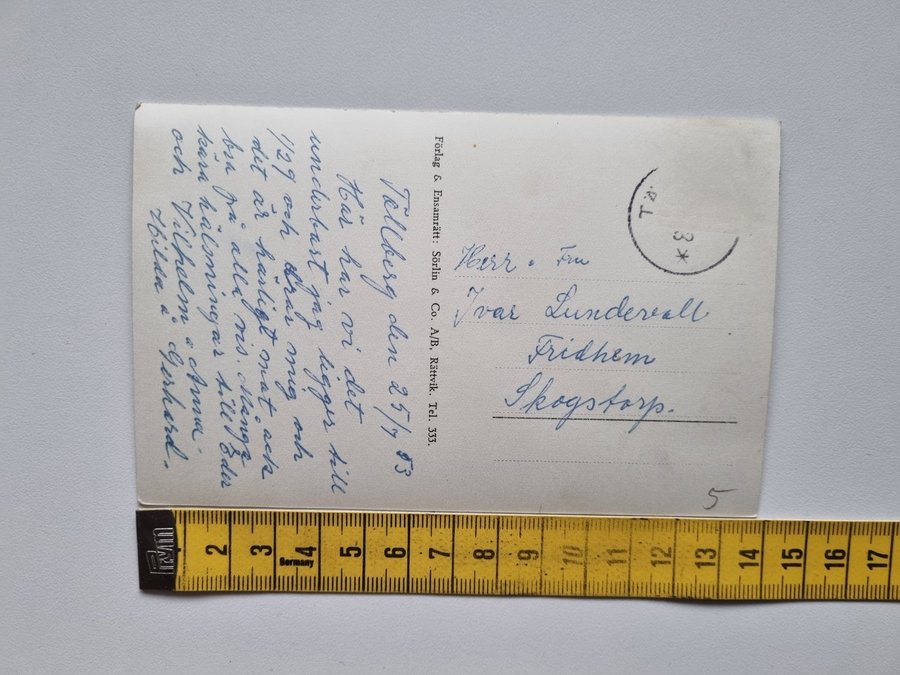 Tällberg den 25/7 53
Här har vi det
underbart jag ligger till
1/2 9 och drar mig och
det är härligt mat ock
bra på alla vis. Många
kära hälsningar till Eder
och Vilhelm o Anna.
Hilda o Gerhard.
Förlag & Ensamrätt: Sörlin & Co. A/B, Rättvik. Tel. 333.
Herr o Fru
Ivar Lundevall
Fridhem
Skogstorp.
5
2 3 4 5 6 7 8 9 10 11 12 13 14 15 16 17
Germany